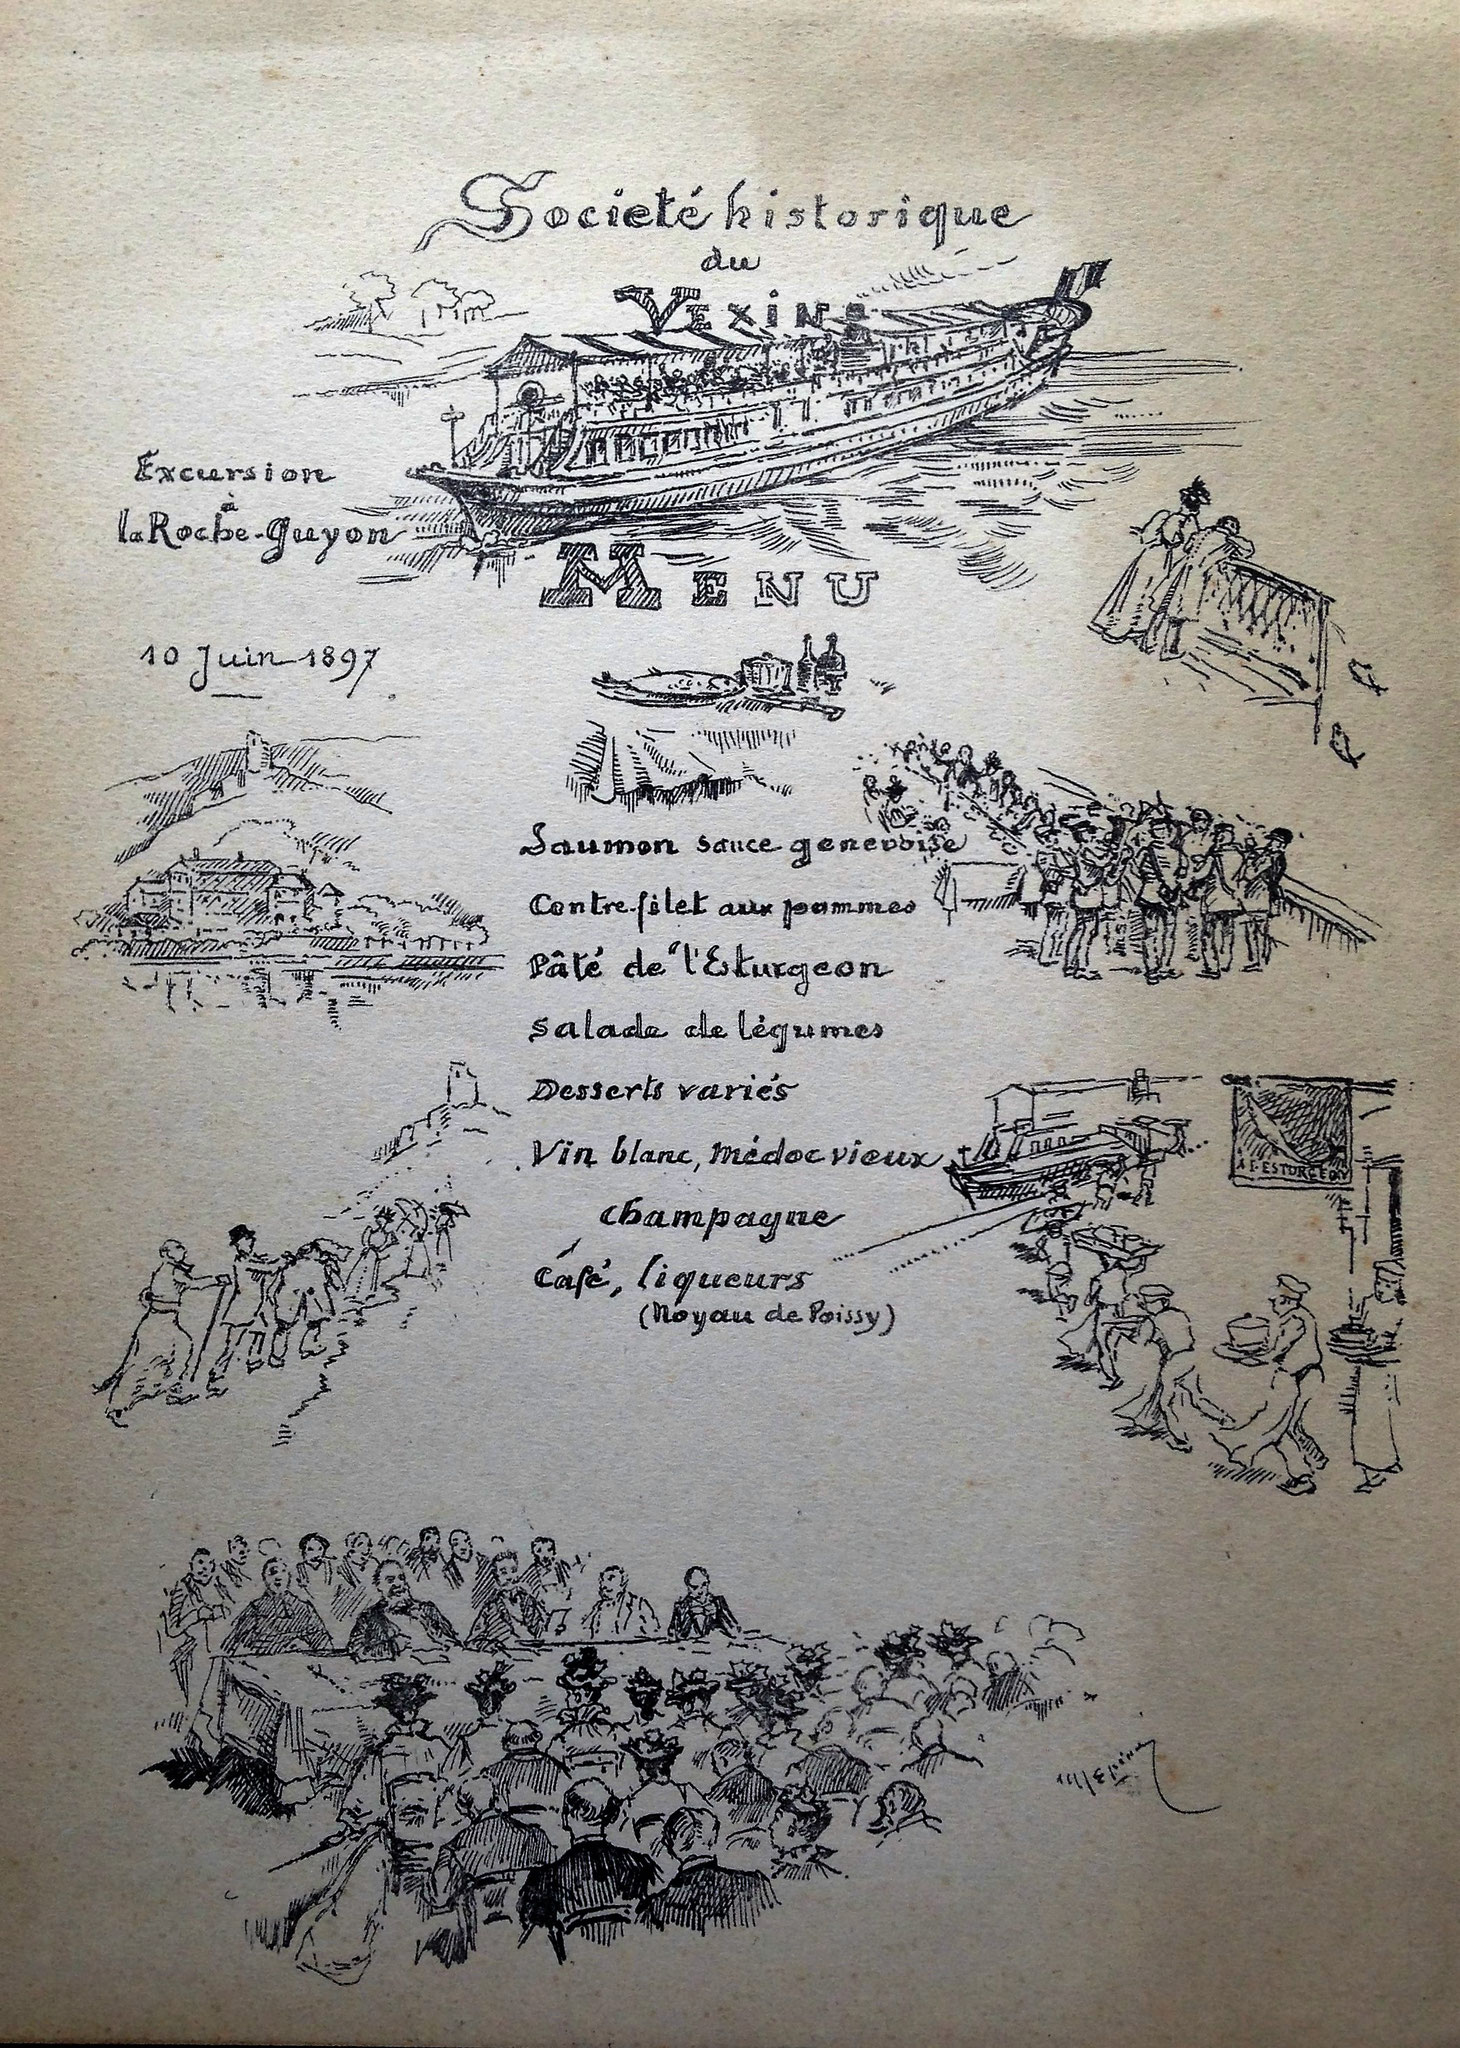 Societé historique
du
VEXIN
Excursion
à
la Roche-Guyon
MENU
10 Juin 1897
Saumon sauce genevoise
Contre-filet aux pommes
Pâté de "l'Esturgeon
Salade de légumes
Desserts variés
Vin blanc, médoc vieux
champagne
Café, liqueurs
(Noyau de Poissy)
A L'ESTURGEON